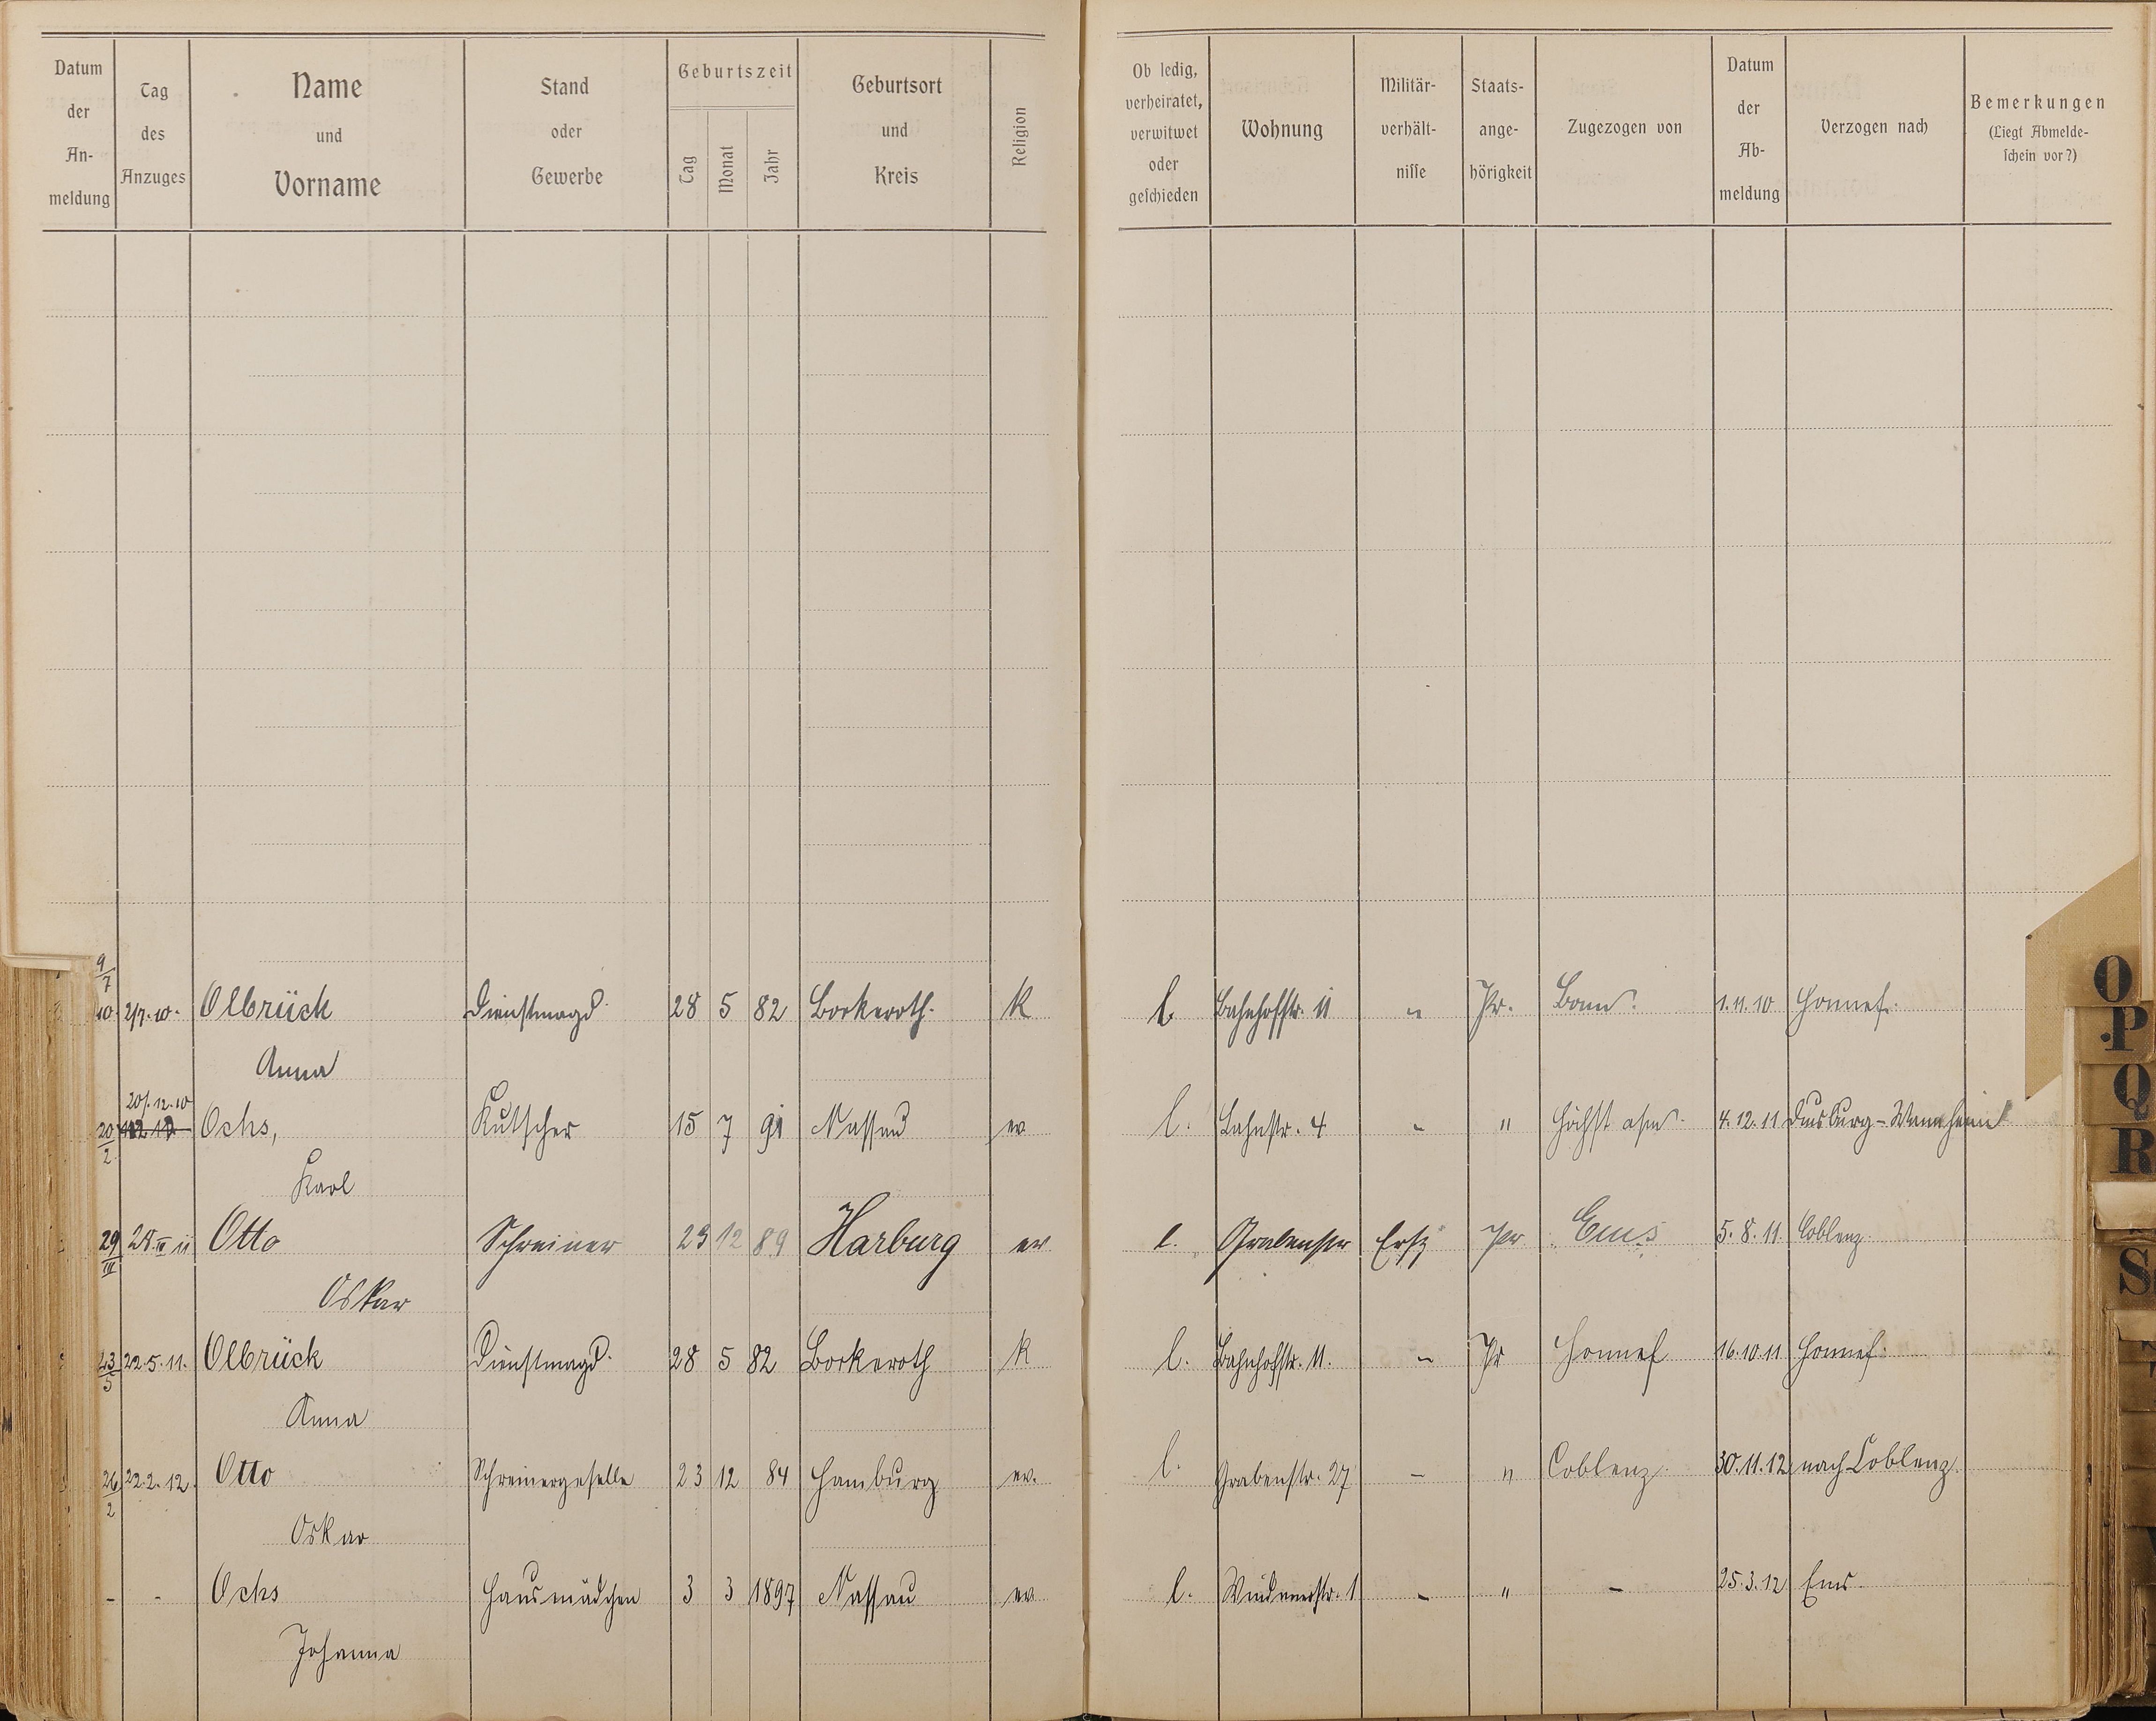 Datum der An-meldung | Tag des Anzuges | Name und Vorname | Stand oder Gewerbe | Geburtszeit Tag Monat Jahr | Geburtsort und Kreis | Religion | Ob ledig, verheiratet, verwitwet oder geschieden | Wohnung | Militär-verhält-nisse | Staats-ange-hörigkeit | Zugezogen von | Datum der Ab-meldung | Verzogen nach | Bemerkungen (Liegt Abmelde-schein vor?)
9/7
10. 2/7.10. Olbrück Dienstmagd. 28 5 82 Bockeroth. K l. Bahnhofstr. 11 " Pr. Bonn. 1.11.10 Honnef.
Anna
20/.12.10
20/2 Ochs, Kutscher 15 7 91 Nassau ev l. Lahnstr. 4 - " Höchst a/m. 4.12.11 Duisburg-Wanheim
Karl
29/III 28.III 11 Otto Schreiner 23 12 89 Harburg ev l. Grabenstr Ers Pr Ems 5.8.11. Coblenz.
Oskar
23/5 22.5.11. Olbrück Dienstmagd. 28 5 82 Bockeroth K l. Bahnhofstr. 11. " Pr Honnef 16.10 11 Honnef.
Anna
26/2 22.2.12. Otto Schreinergeselle 23 12 84 Hamburg ev. l. Grabenstr. 27 - " Coblenz. 30.11.12 nach Coblenz.
Oskar
- - Ochs Hausmädchen 3 3 1897 Nassau ev l. Windenerstr. 1 - " - 25.3.12 Ems.
Johanna
O
P
Q
R
S